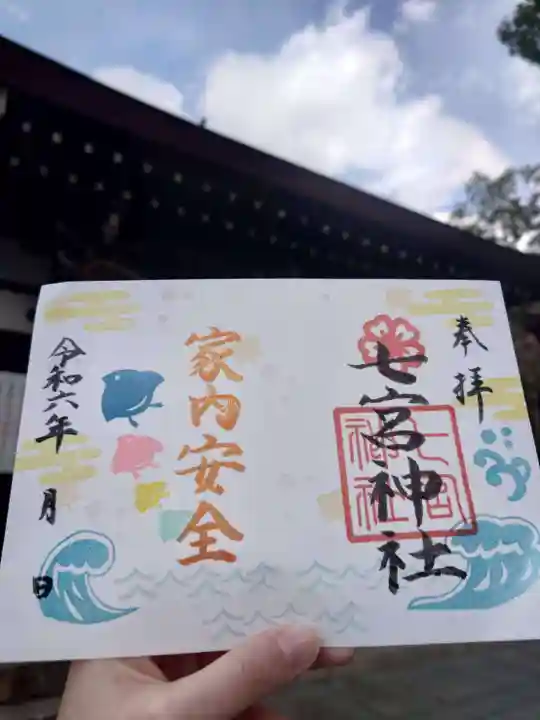 奉拝
七宮神社
七宮神社
家内安全
令和六年 月 日